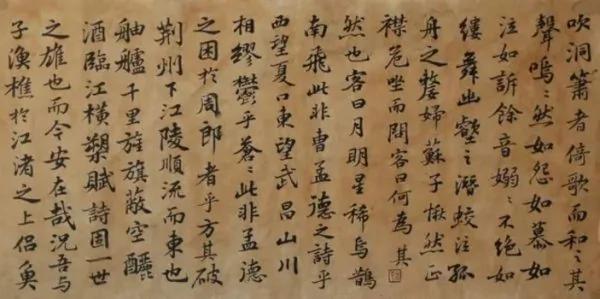 吹洞簫者倚歌而和之其
聲嗚〻然如怨如慕如
泣如訴餘音嫋〻不絕如
縷舞幽壑之潛蛟泣孤
舟之嫠婦蘇子愀然正
襟危坐而問客曰何為其
然也客曰月明星稀烏鵲
南飛此非曹孟德之詩乎
西望夏口東望武昌山川
相繆鬱乎蒼〻此非孟德
之困於周郎者乎方其破
荆州下江陵順流而東也
舳艫千里旌旗蔽空釃
酒臨江橫槊賦詩固一世
之雄也而今安在哉況吾與
子漁樵於江渚之上侶魚